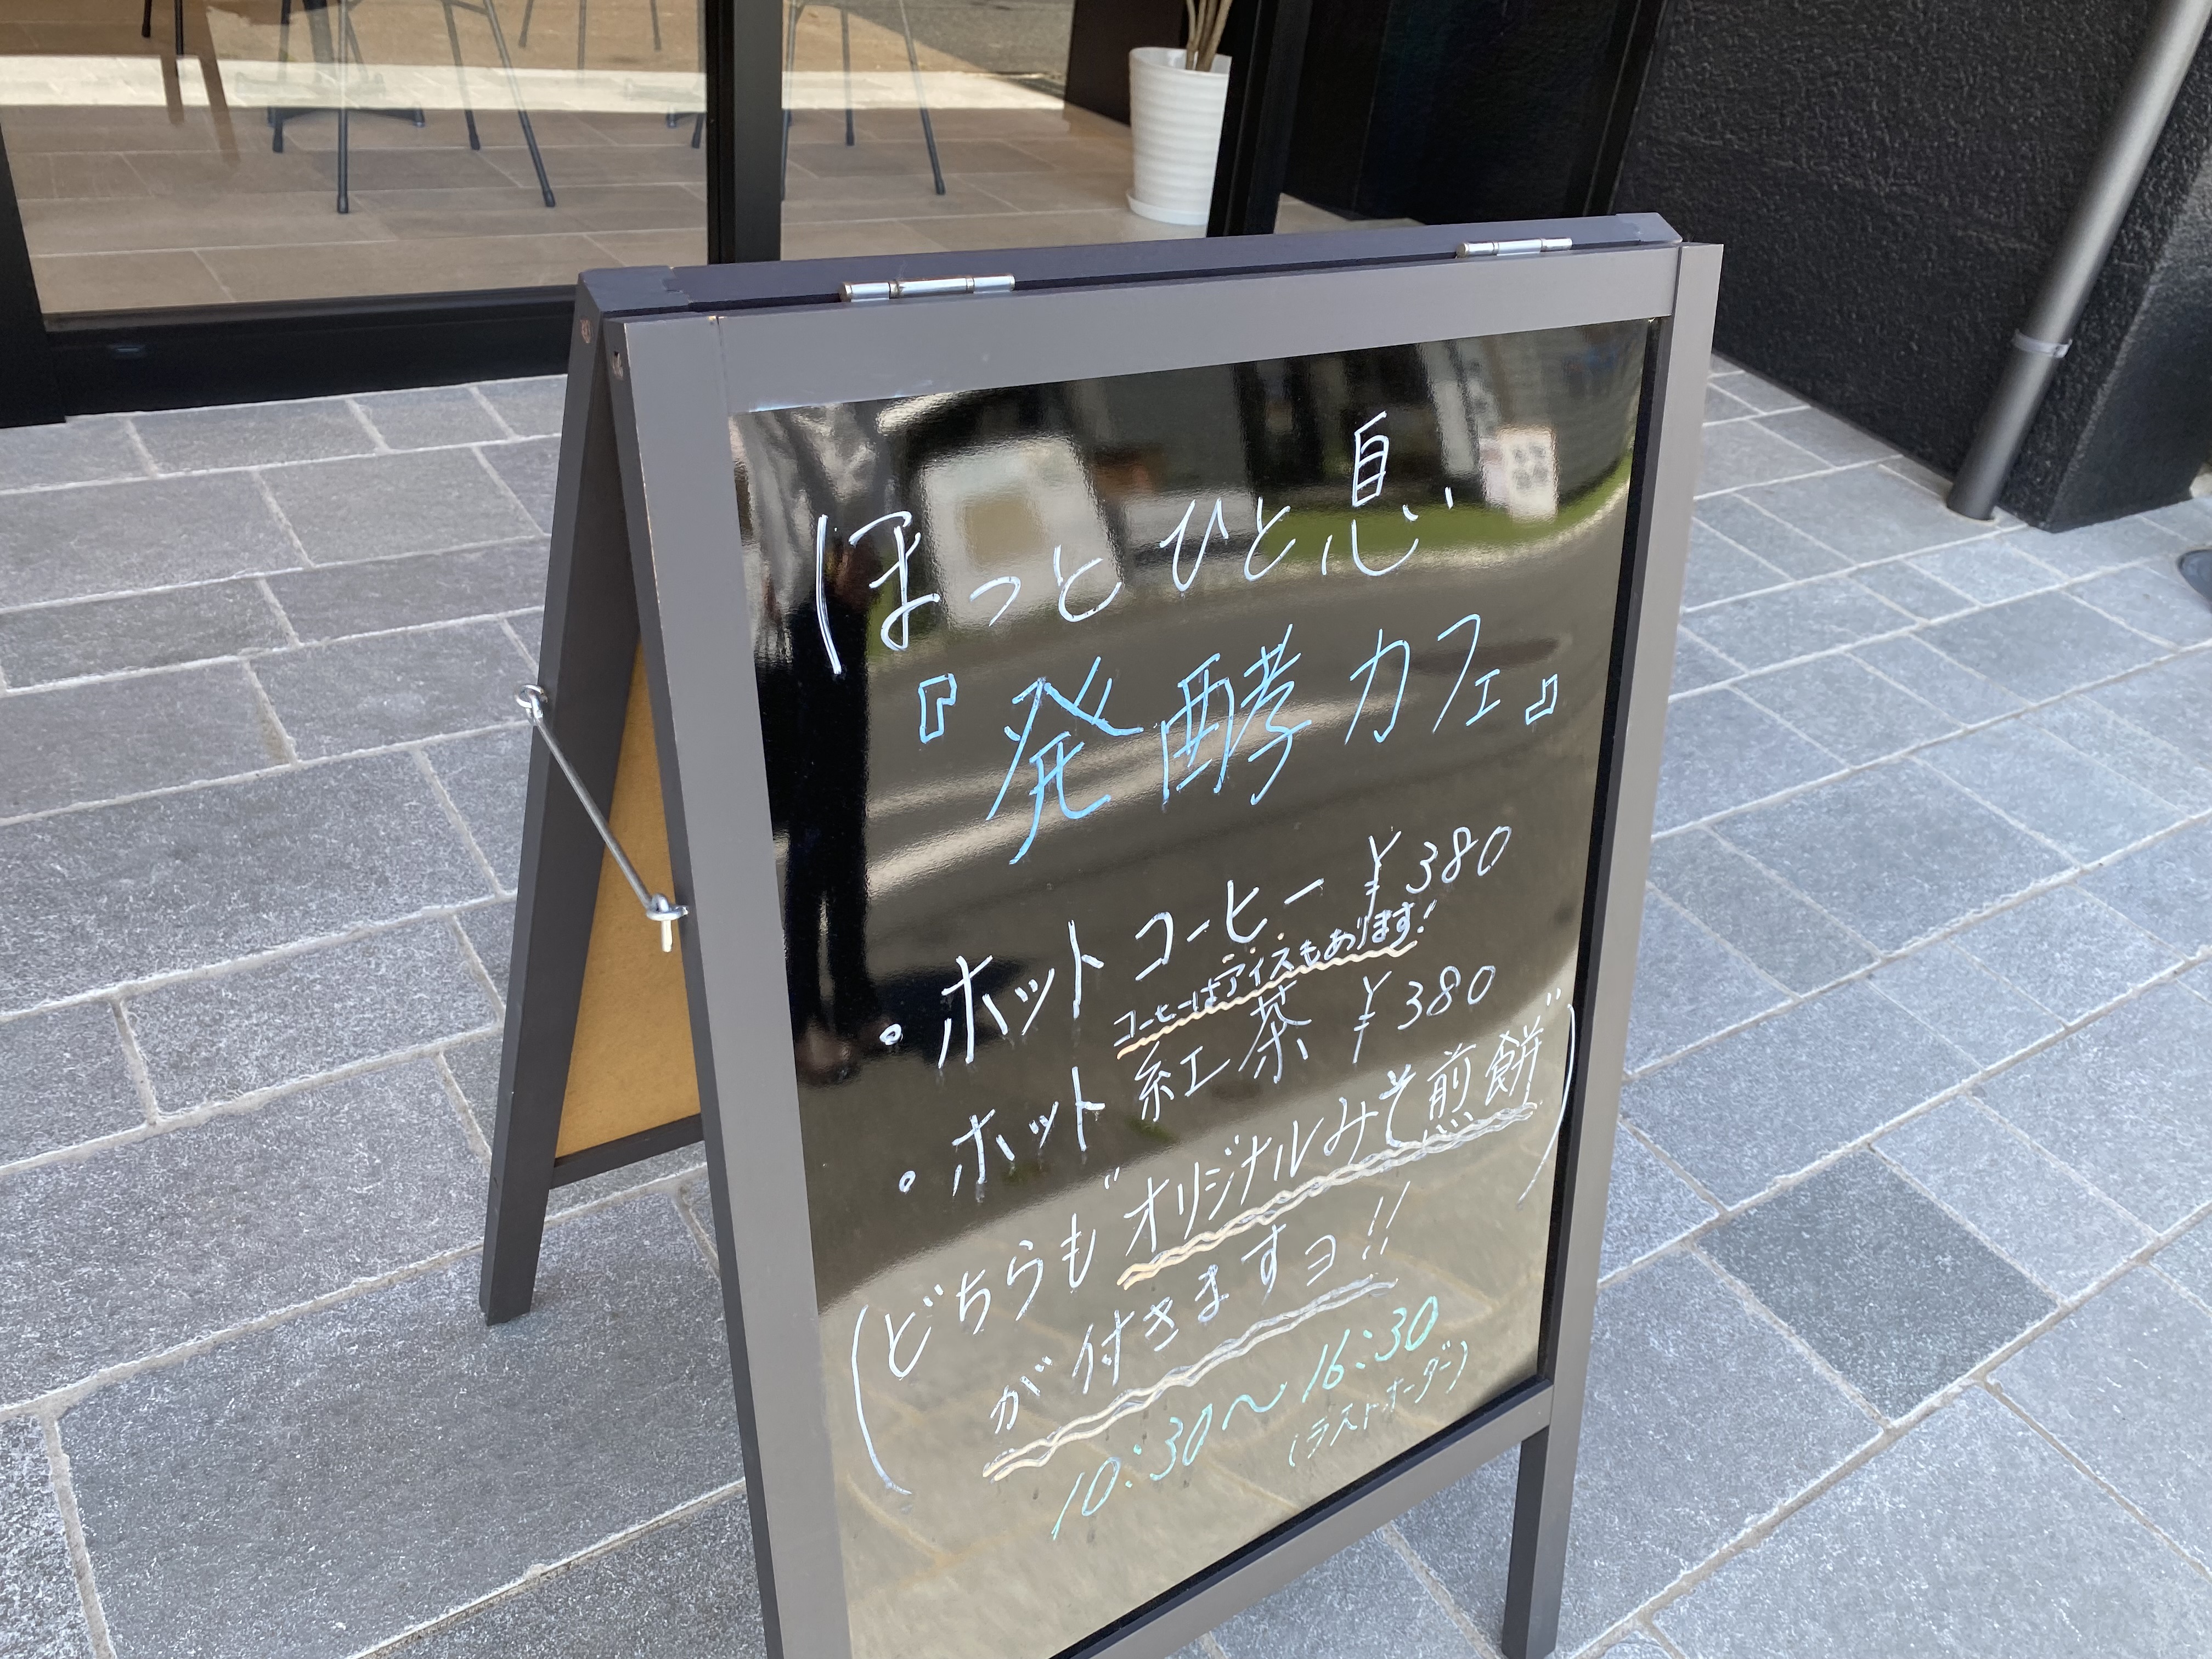 ほっとひと息
『発酵カフェ』
・ホットコーヒー ¥380
コーヒーはアイスもあります!
・ホット紅茶 ¥380
(どちらも"オリジナルみそ煎餅"
が付きますヨ!!)
10:30〜16:30
(ラストオーダー)